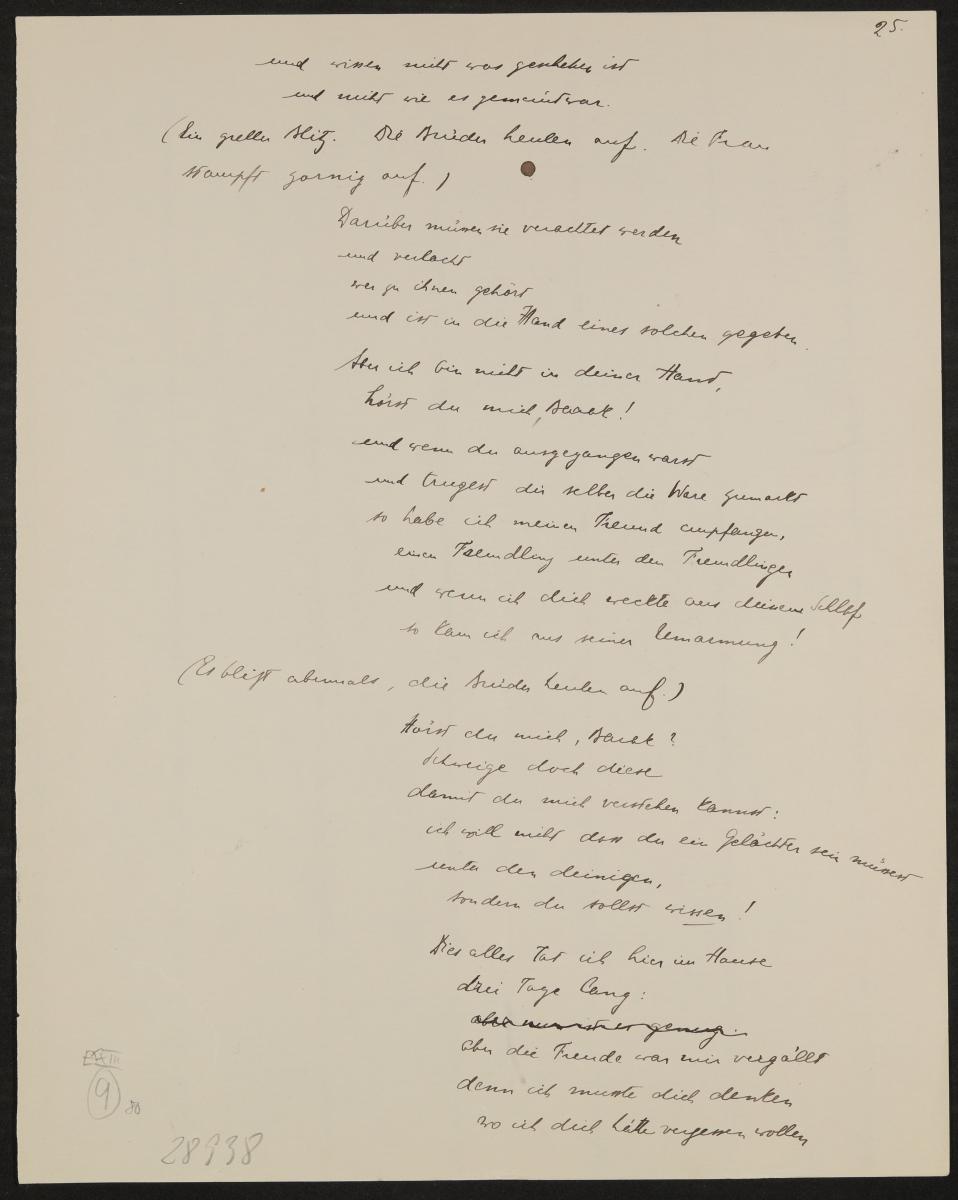 25.
und wissen nicht was geschehen ist
und nicht wie es gemeint war.
(Ein greller Blitz. Die Brüder heulen auf. Die Frau
stampft zornig auf.)
Darüber müssen sie verachtet werden
und verlacht
wer zu ihnen gehört
und ist in die Hand eines solchen gegeben.
Aber ich bin nicht in deiner Hand,
hörst du mich, Barak!
und wenn du ausgegangen warst
und trugest dir selber die Ware zumarkt
so habe ich meinen Freund empfangen,
einen Fremdling unter den Fremdlingen
und wenn ich dich weckte aus deinem Schlaf
so kam ich aus seiner Umarmung!
(Es blitzt abermals, die Brüder heulen auf.)
Hörst du mich, Barak?
Schweige doch diese
damit du mich verstehen kannst:
ich will nicht dass du ein Gelächter sein müssest
unter den deinigen,
sondern du sollst wissen!
Dies alles tat ich hier im Hause
drei Tage lang:
aber nun ist es genug.
aber die Freude war mir vergällt
denn ich musste dich denken
wo ich dich hätte vergessen wollen
XXIII
9
80
28938